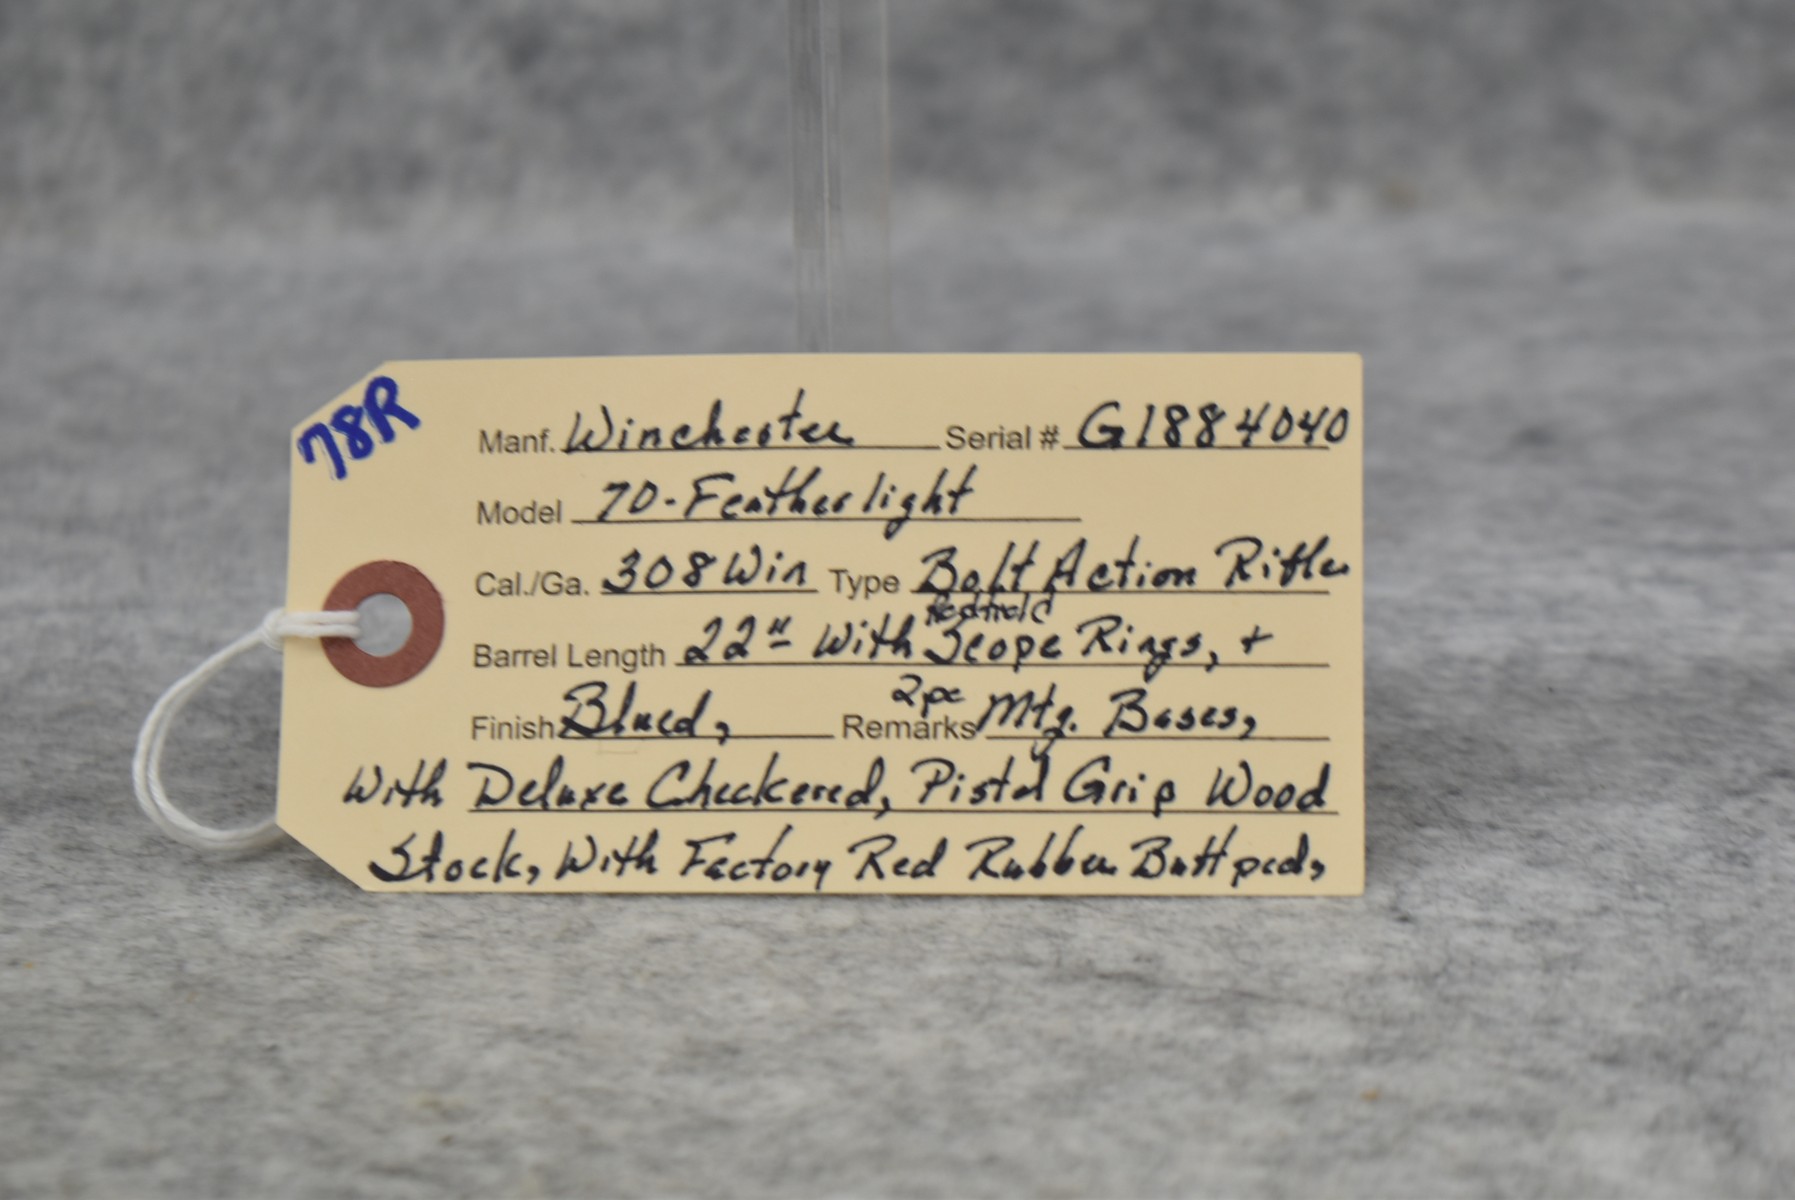 78R
Manf. Winchester Serial # G1884040
Model 70-Featherlight
Cal./Ga. 308 Win Type Bolt Action Rifle
Redfield
Barrel Length 22" With Scope Rings, +
2pc
Finish Blued, Remarks Mtg. Bases,
With Deluxe Checkered, Pistol Grip Wood
Stock, With Factory Red Rubber Buttpad,